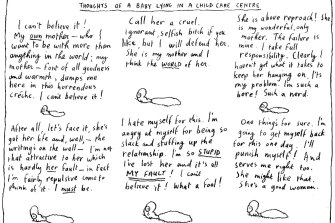 THOUGHTS OF A BABY LYING IN A CHILD CARE CENTRE
I can't believe it!
My own mother - who I
want to be with more than
anything in the world; my
mother - font of all goodness
and warmth, dumps me
here in this horrendous
crèche. I can't believe it!
Call her a cruel,
ignorant, selfish bitch if you
like but I will defend her.
She is my mother and I
think the WORLD of her.
She is above reproach! She
is my wonderful, only
mother. The failure is
mine. I take full
responsibility. Clearly I
haven't got what it takes to
keep her hanging on. It's
my problem. I'm such a
bore! Such a nerd.
After all, let's face it, she's
got her life and, well - the
writing's on the wall - I'm not
that attractive to her which
is hardly her fault - in fact
I'm fairly repulsive come to
think of it. I must be.
I hate myself for this. I'm
angry at myself for being so
slack and stuffing up the
relationship. I'm so STUPID
I've lost her and it's all
MY FAULT! I can't
believe it! What a fool!
One thing's for sure. I'm
going to get myself back
for this one day. I'll
punish myself! And
serves me right too.
She might like that.
She's a good woman.